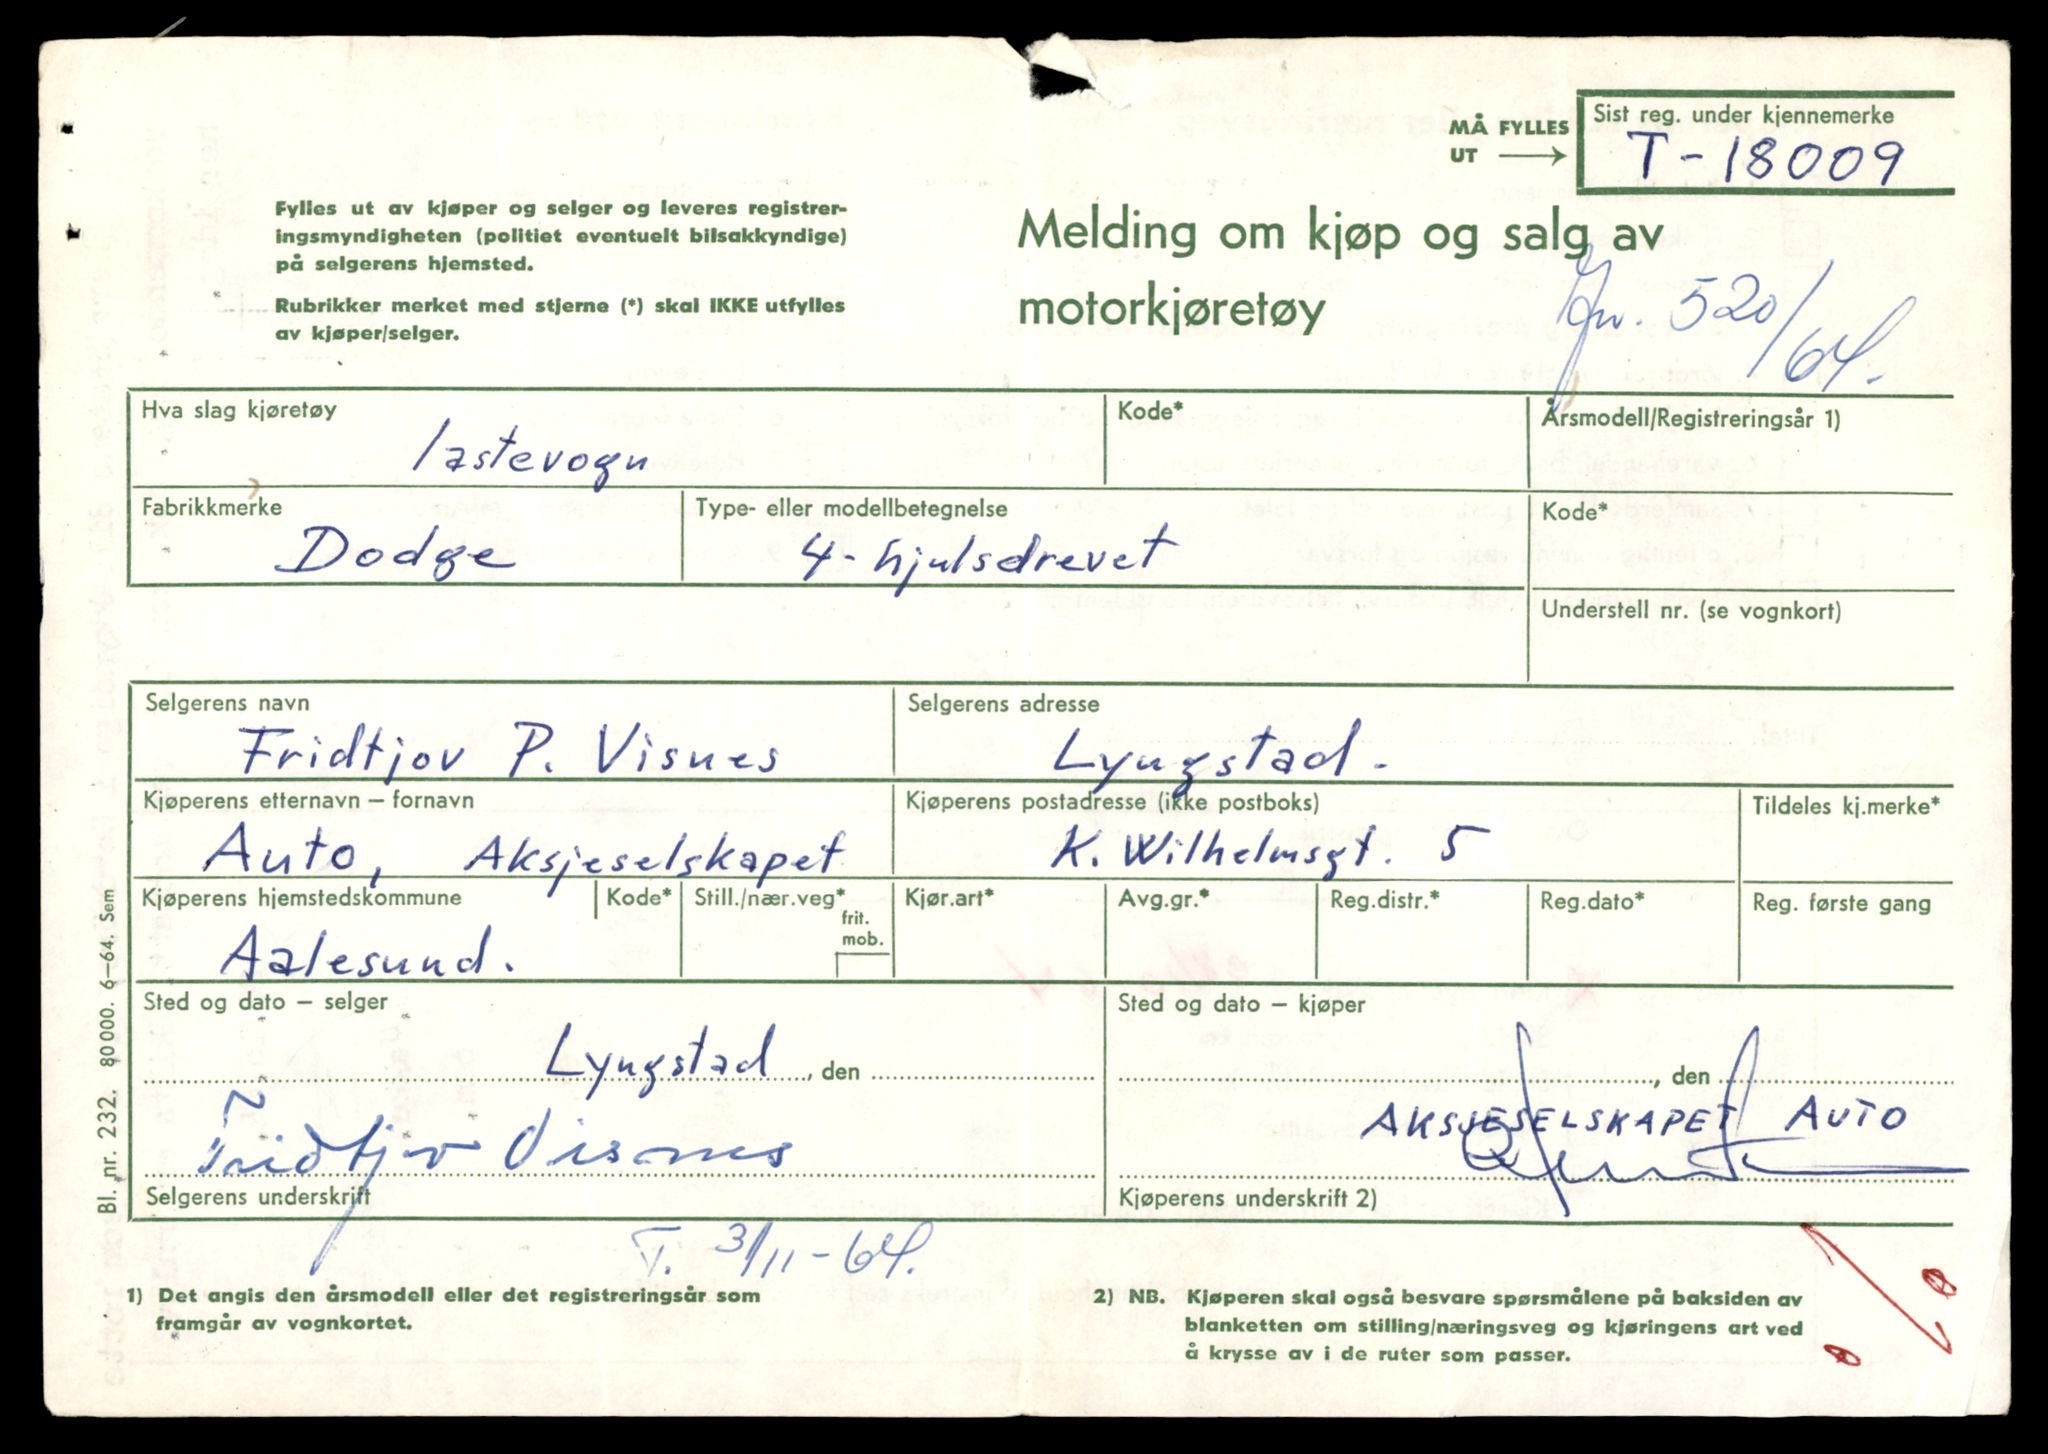 MÅ FYLLES
UT
Sist reg. under kjennemerke
T-18009
Fylles ut av kjøper og selger og leveres registrer-
ingsmyndigheten (politiet eventuelt bilsakkyndige)
på selgerens hjemsted.
Rubrikker merket med stjerne (*) skal IKKE utfylles
av kjøper/selger.
Melding om kjøp og salg av
motorkjøretøy
Jnr. 520/64.
Hva slag kjøretøy
lastevogn
Kode*
Årsmodell/Registreringsår 1)
Fabrikkmerke
Dodge
Type- eller modellbetegnelse
4-hjulsdrevet
Kode*
Understell nr. (se vognkort)
Selgerens navn
Fridtjov P. Visnes
Selgerens adresse
Lyngstad.
Kjøperens etternavn – fornavn
Auto, Aksjeselskapet
Kjøperens postadresse (ikke postboks)
K. Wilhelmsgt. 5
Tildeles kj.merke*
Kjøperens hjemstedskommune
Aalesund.
Kode*
Still./nær.veg*
frit.
mob.
Kjør.art*
Avg.gr.*
Reg.distr.*
Reg.dato*
Reg. første gang
Sted og dato – selger
Lyngstad, den
Fridtjov Visnes
Selgerens underskrift
Sted og dato – kjøper
, den
AKSJESELSKAPET AUTO
Kjøperens underskrift 2)
T. 3/11-64.
1) Det angis den årsmodell eller det registreringsår som
framgår av vognkortet.
2) NB. Kjøperen skal også besvare spørsmålene på baksiden av
blanketten om stilling/næringsveg og kjøringens art ved
å krysse av i de ruter som passer.
Bl. nr. 2232. 80000. 6–64. Sem